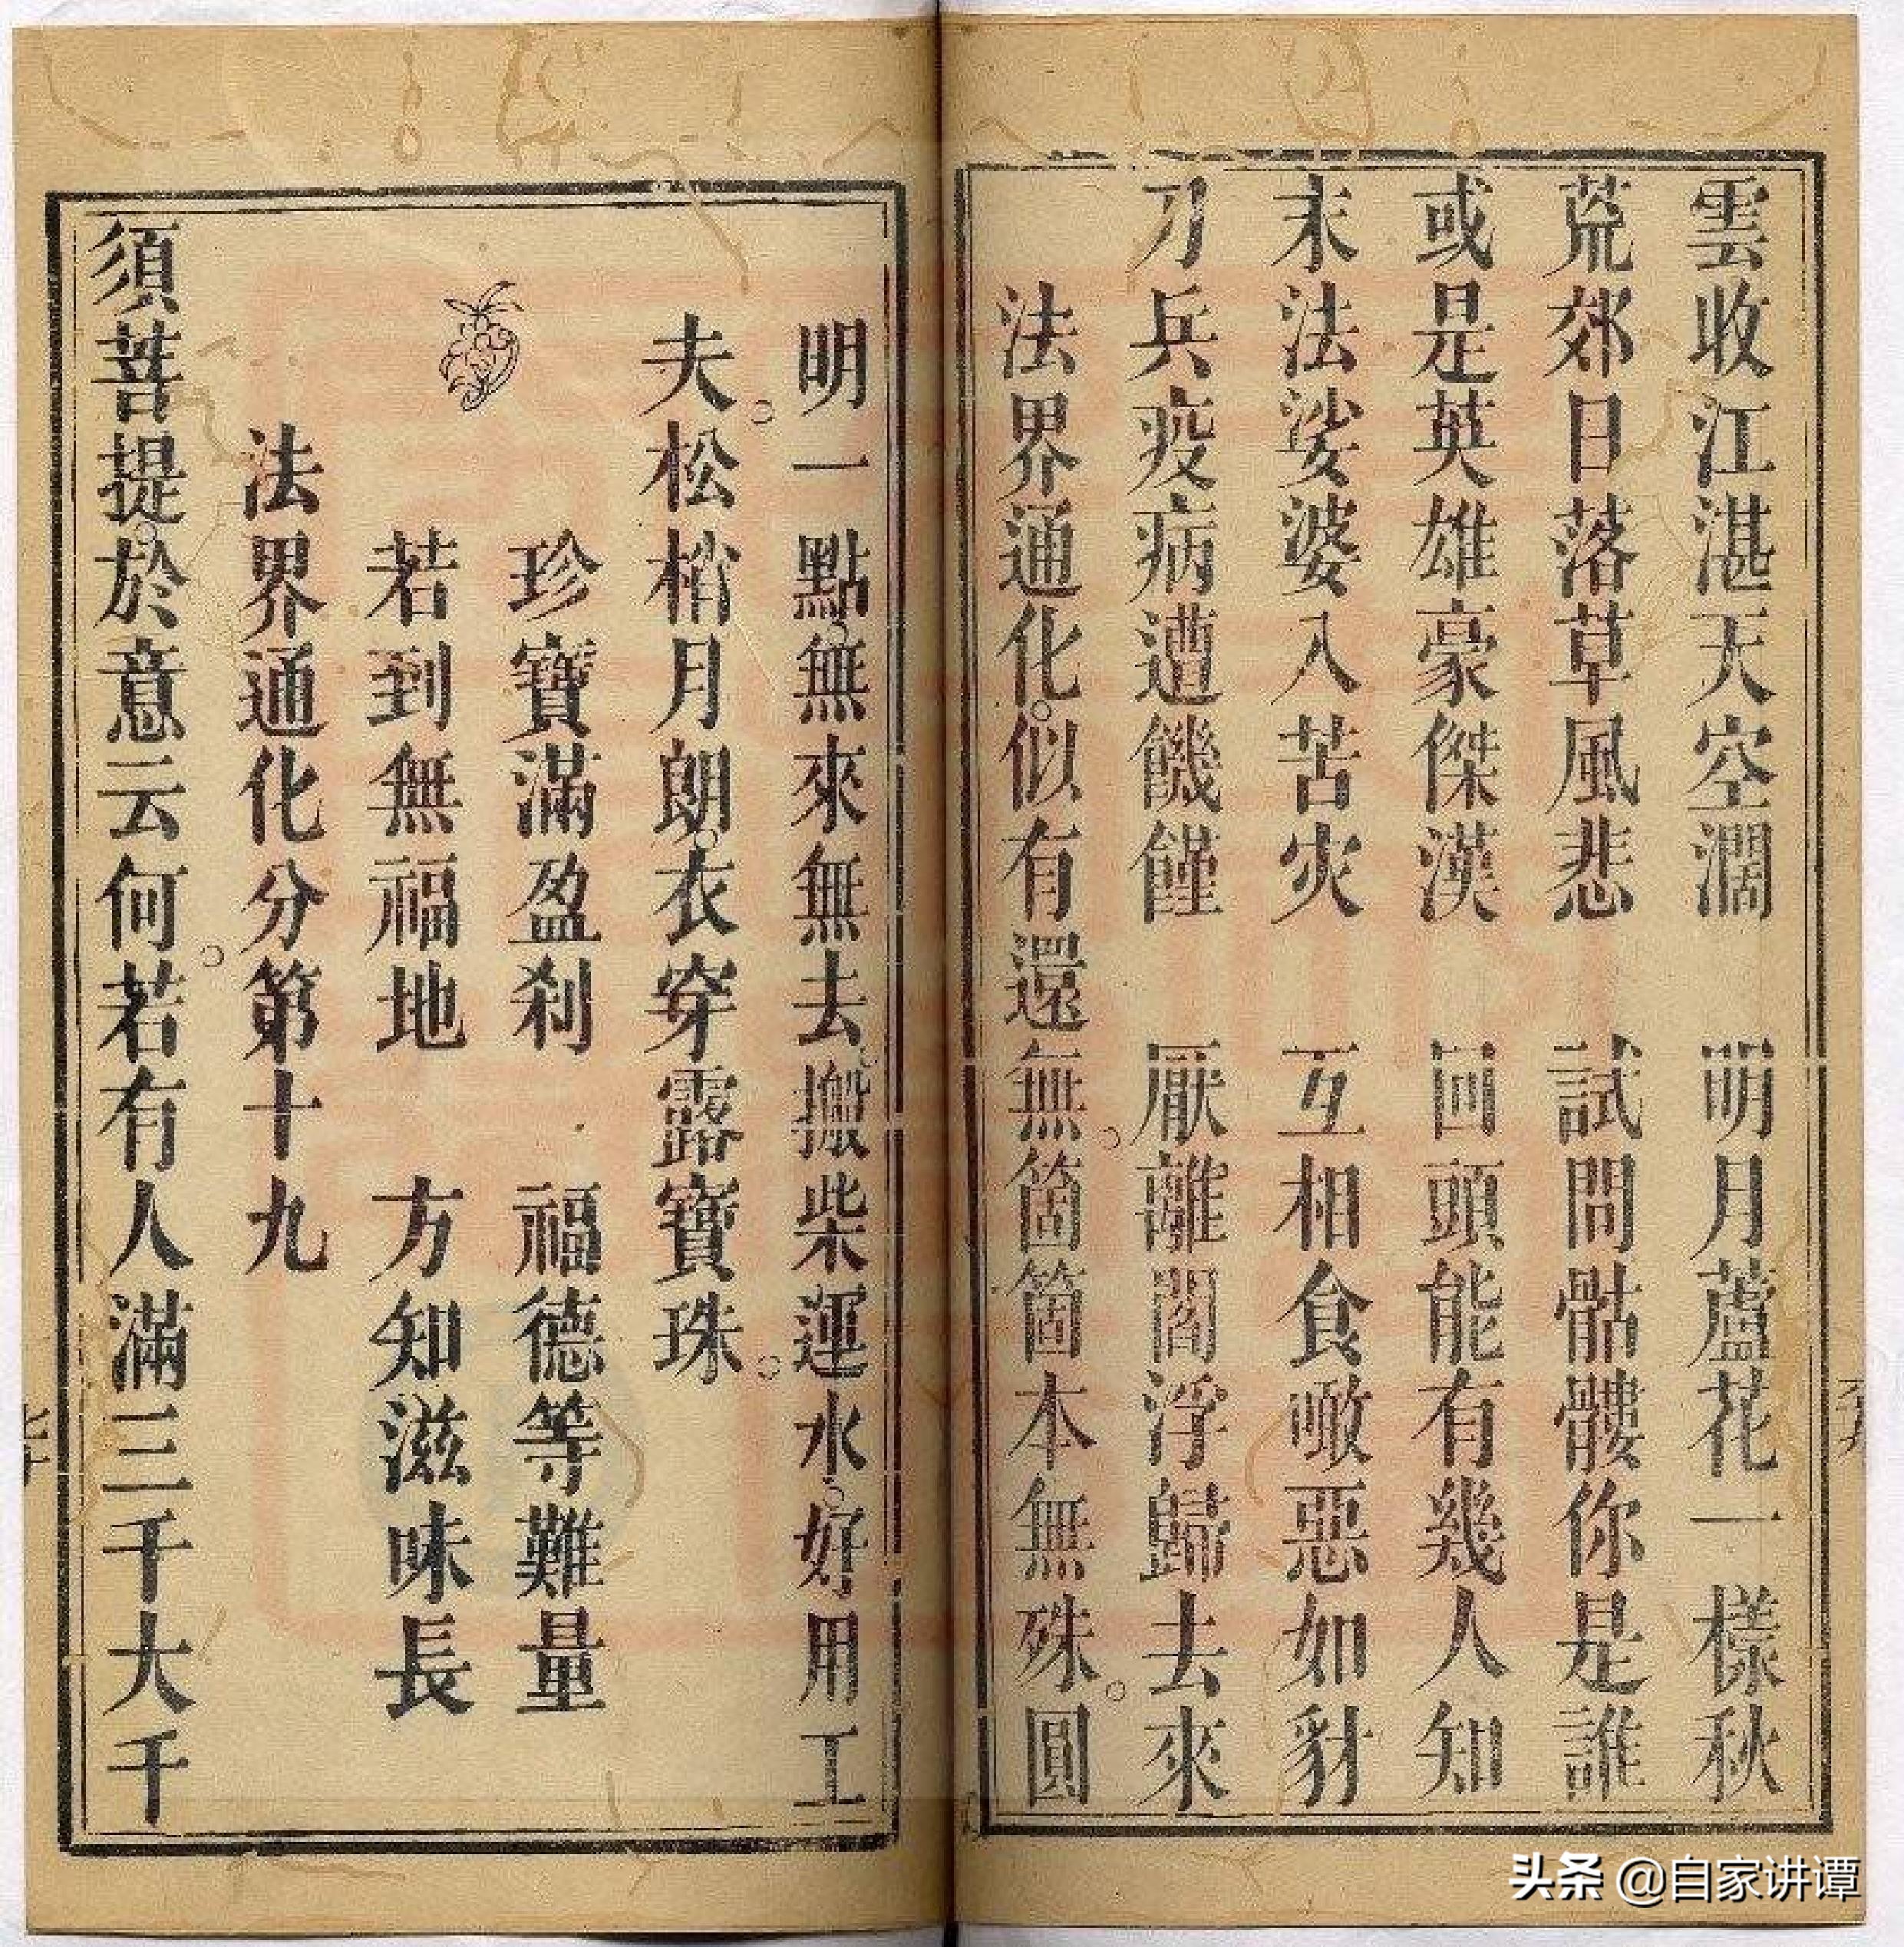 雲收江湛天空濶　明月蘆花一樣秋
荒郊日落草風悲　試問骷髏你是誰
或是英雄豪傑漢　回頭能有幾人知
末法娑婆入苦灾　互相食噉惡如豺
刀兵疫病遭饑饉　厭離閻浮歸去來
法界通化。似有還無。箇箇本無殊。圓
明一點。無來無去。搬柴運水。好用工
夫。松梢月朗。衣穿露寶珠。
珍寶滿盈剎　福德等難量
若到無福地　方知滋味長
法界通化分第十九
須菩提。於意云何。若有人滿三千大千
六十九
七十
头条 @自家讲谭